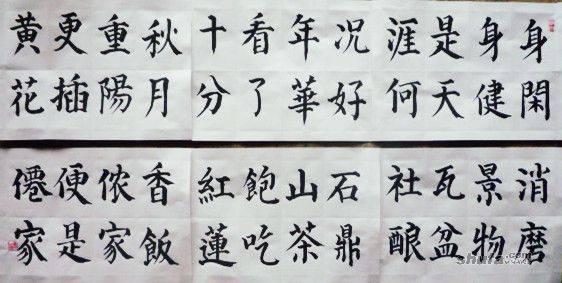 身閑
身健
是天
涯何
况好
年華
看了
十分
秋月
重陽
更插
黄花
消磨
景物
瓦盆
社酿
石鼎
山茶
飽吃
紅蓮
香飯
侬家
便是
僊家